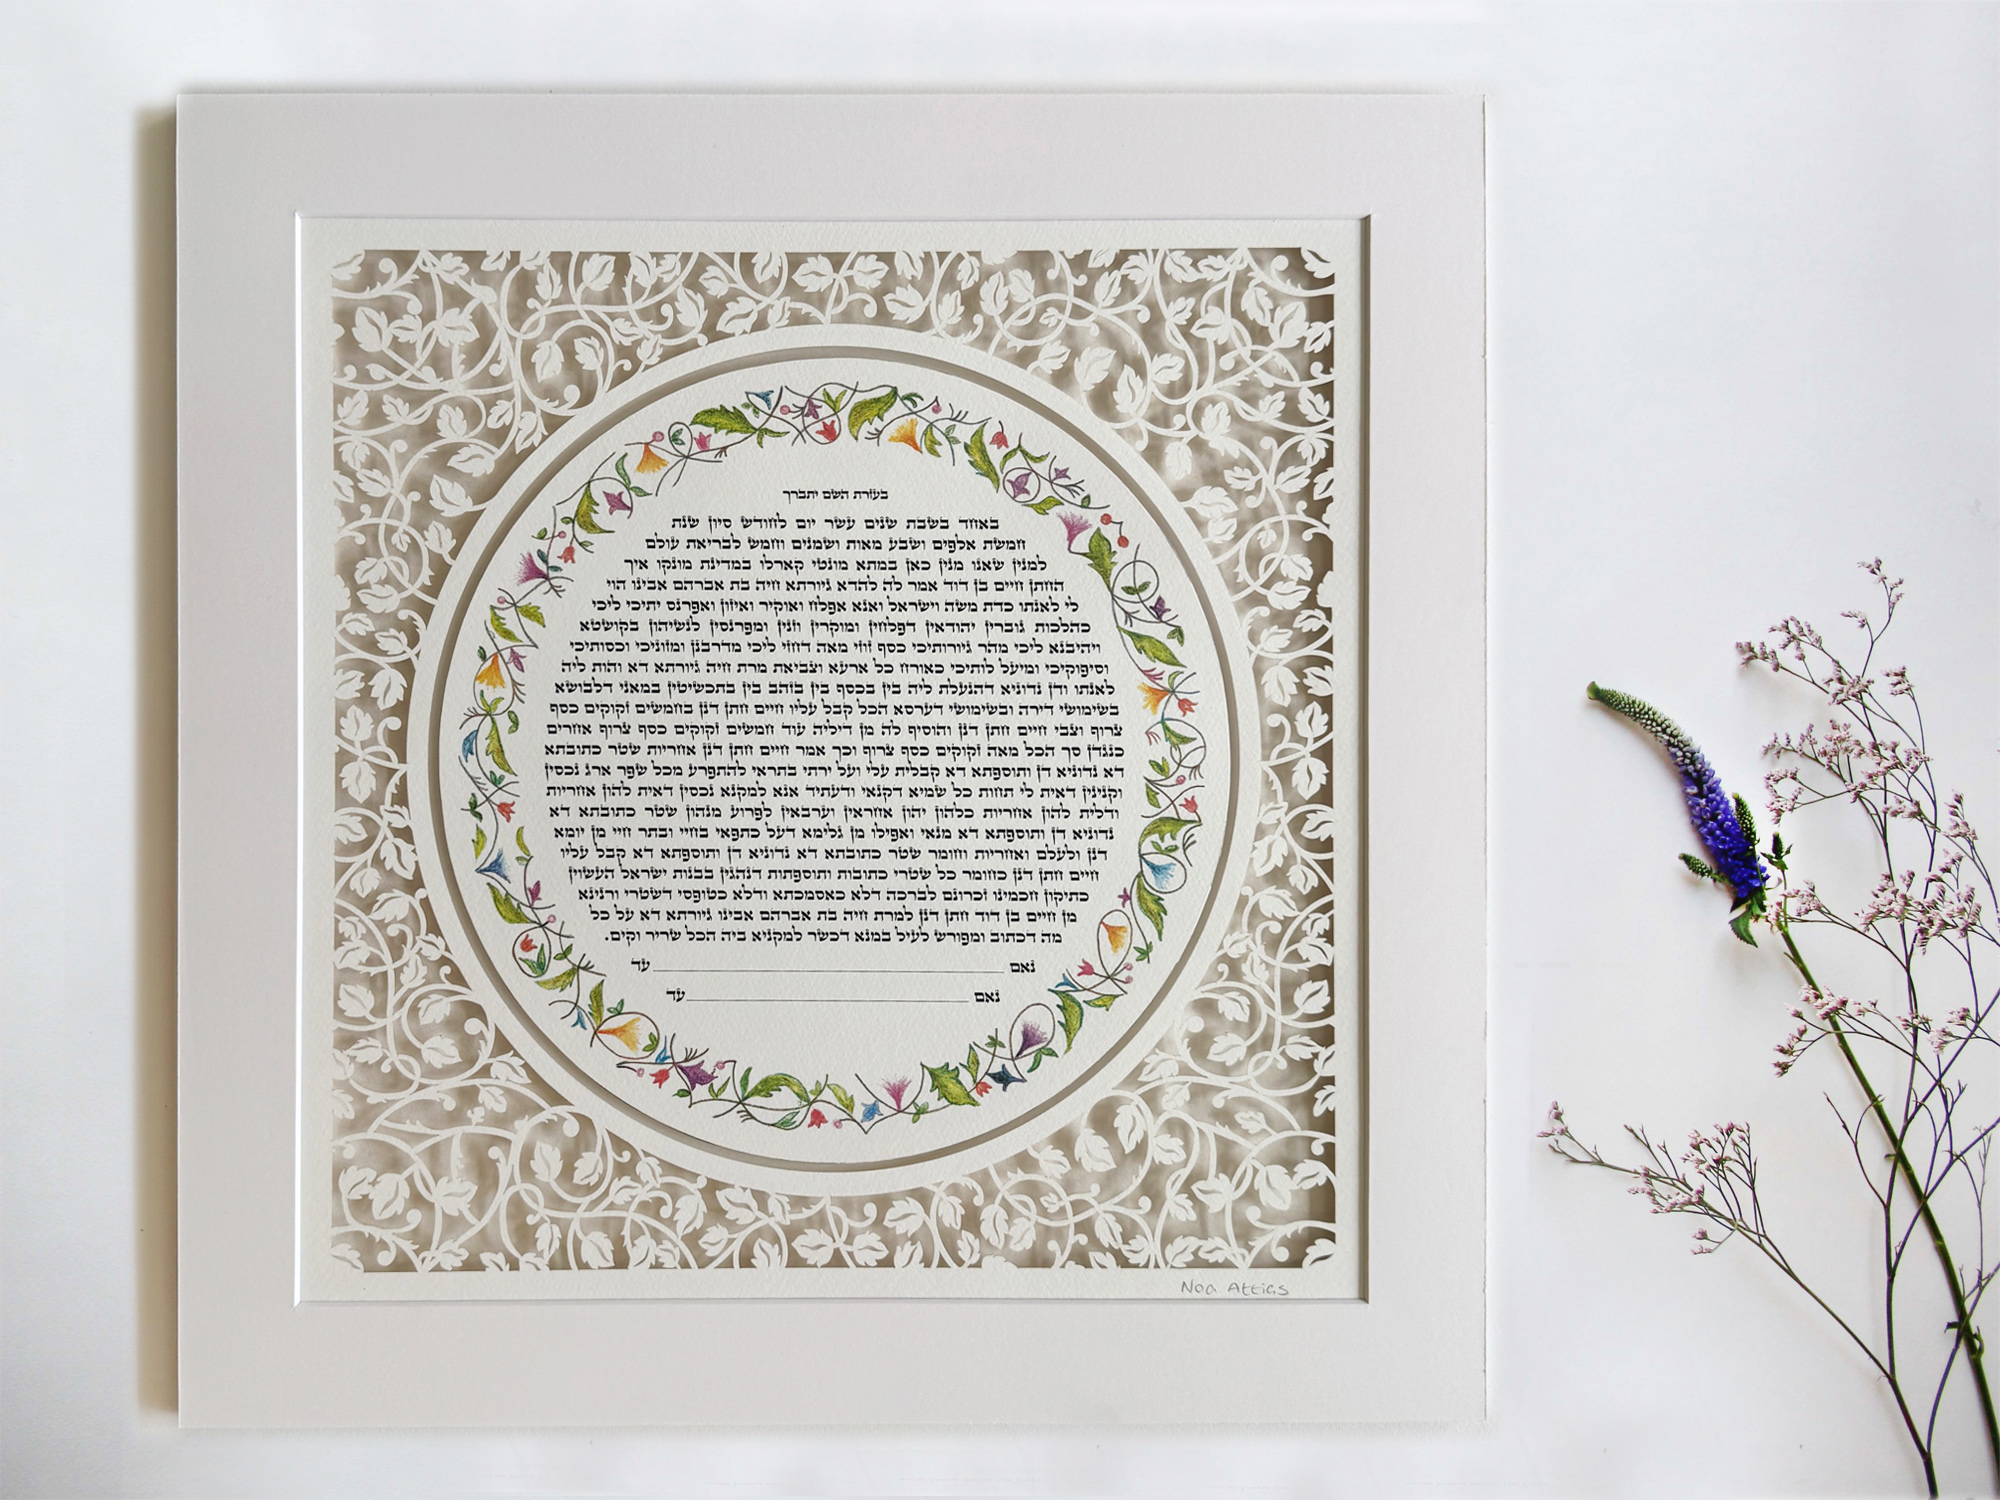 בעזרת השם יתברך
באחד בשבת שנים עשר יום לחודש סיון שנת
חמשת אלפים ושבע מאות ושמנים וחמש לבריאת עולם
למנין שאנו מנין כאן במתא מונטי קארלו במדינת מונקו איך
החתן חיים בן דוד אמר לה להדא גיורתא חיה בת אברהם אבינו הוי
לי לאנתו כדת משה וישראל ואנא אפלח ואוקיר ואיזון ואפרנס יתיכי ליכי
כהלכות גוברין יהודאין דפלחין ומוקרין וזנין ומפרנסין לנשיהון בקושטא
ויהיבנא ליכי מהר גיורותיכי כסף זוזי מאה דחזי ליכי מדרבנן ומזוניכי וכסותיכי
וסיפוקיכי ומיעל לותיכי כאורח כל ארעא וצביאת מרת חיה גיורתא דא והות ליה
לאנתו ודן נדוניא דהנעלת ליה בין בכסף בין בזהב בין בתכשיטין במאני דלבושא
בשימושי דירה ובשימושי דערסא הכל קבל עליו חיים חתן דנן בחמשים זקוקים כסף
צרוף וצבי חיים חתן דנן והוסיף לה מן דיליה עוד חמשים זקוקים כסף צרוף אחרים
כנגדן סך הכל מאה זקוקים כסף צרוף וכך אמר חיים חתן דנן אחריות שטר כתובתא
דא נדוניא דן ותוספתא דא קבלית עלי ועל ירתי בתראי להתפרע מכל שפר ארג נכסין
וקנינין דאית לי תחות כל שמיא דקנאי ודעתיד אנא למקנא נכסין דאית להון אחריות
ודלית להון אחריות כלהון יהון אחראין וערבאין לפרוע מנהון שטר כתובתא דא
נדוניא דן ותוספתא דא מנאי ואפילו מן גלימא דעל כתפאי בחיי ובתר חיי מן יומא
דנן ולעלם ואחריות וחומר שטר כתובתא דא נדוניא דן ותוספתא דא קבל עליו
חיים חתן דנן כחומר כל שטרי כתובות ותוספתות דנהגין בבנות ישראל העשוין
כתיקון חכמינו זכרונם לברכה דלא כאסמכתא ודלא כטופסי דשטרי וקנינא
מן חיים בן דוד חתן דנן למרת חיה בת אברהם אבינו גיורתא דא על כל
מה דכתוב ומפורש לעיל במנא דכשר למקניא ביה הכל שריר וקים.
נאם עד
נאם עד
Noa Attias